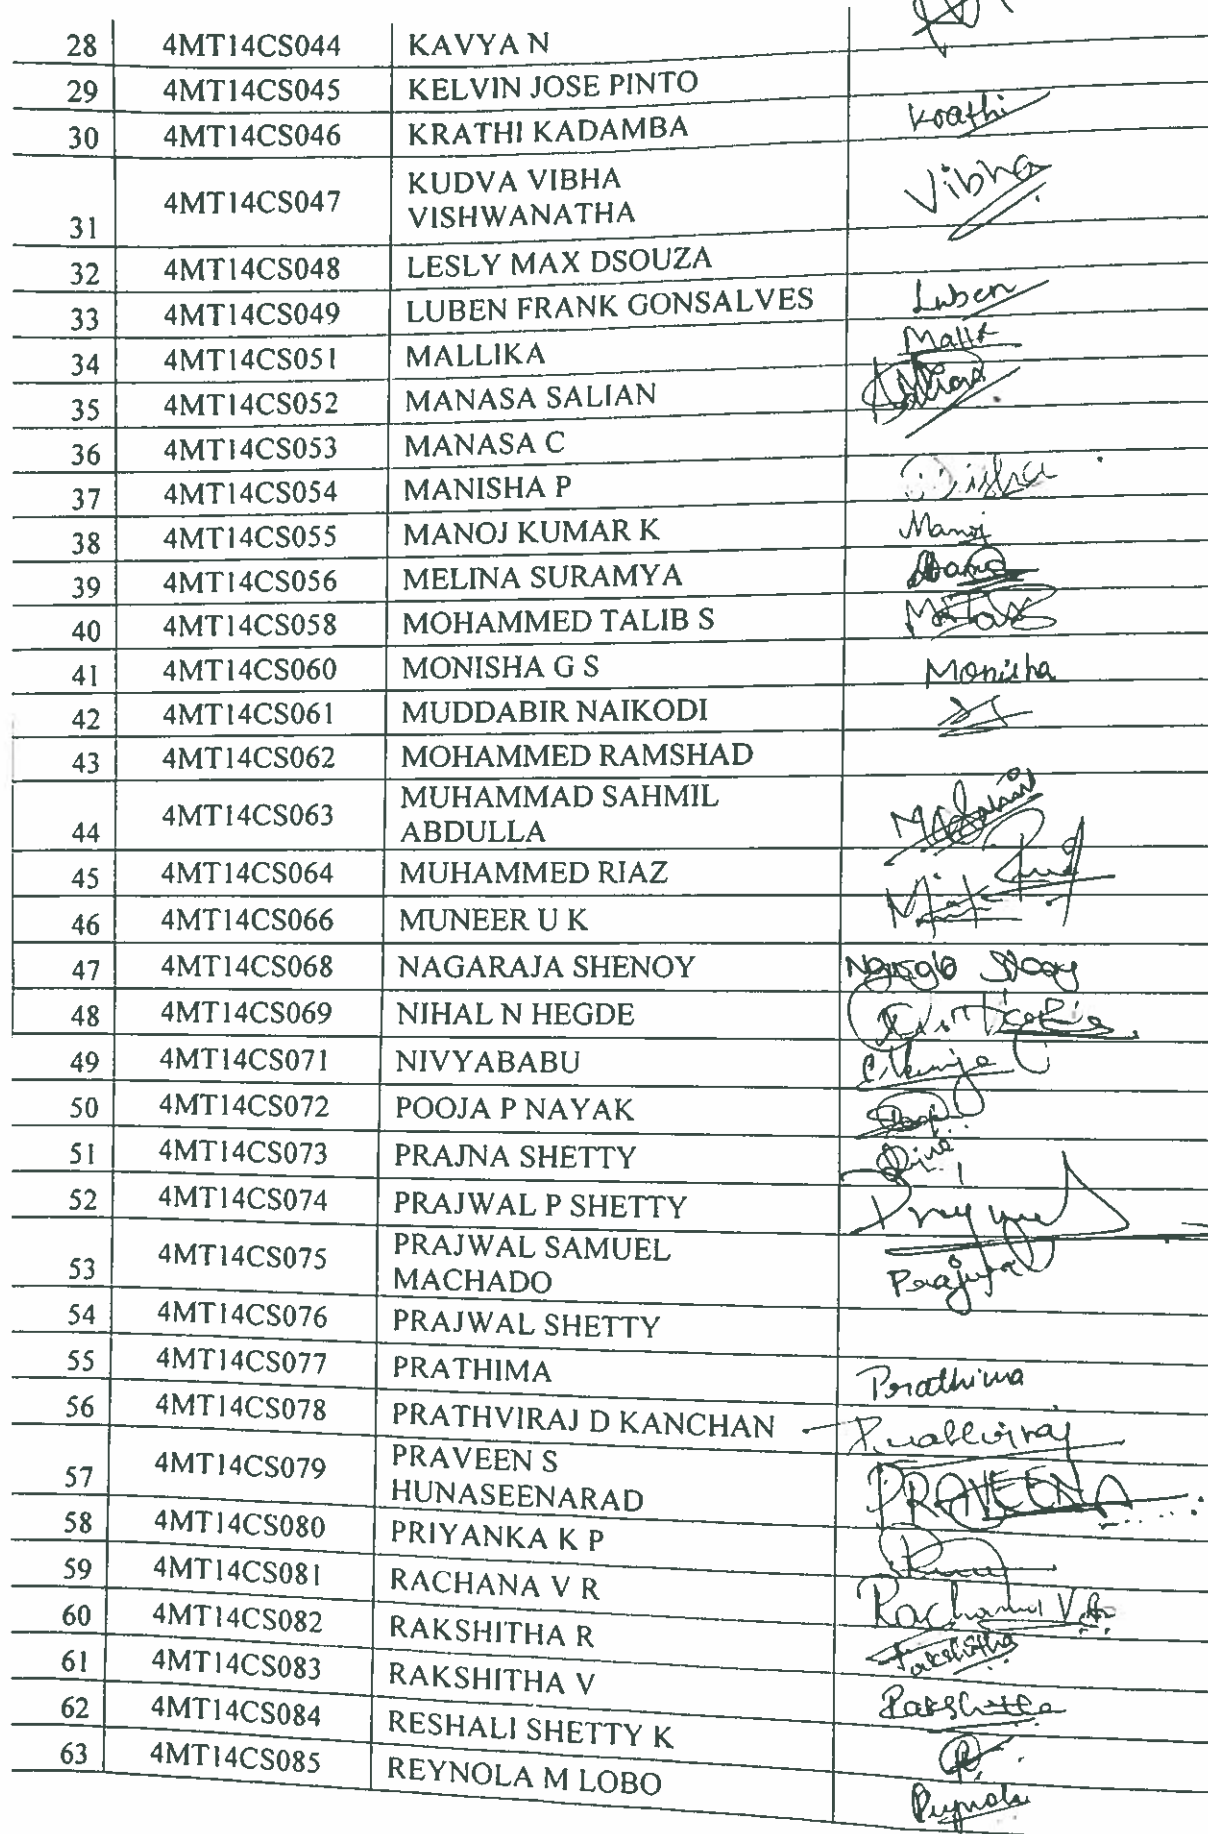 28 4MT14CS044 KAVYA N
29 4MT14CS045 KELVIN JOSE PINTO
30 4MT14CS046 KRATHI KADAMBA Krathi
31 4MT14CS047 KUDVA VIBHA
VISHWANATHA Vibha
32 4MT14CS048 LESLY MAX DSOUZA
33 4MT14CS049 LUBEN FRANK GONSALVES Luben
34 4MT14CS051 MALLIKA
35 4MT14CS052 MANASA SALIAN
36 4MT14CS053 MANASA C
37 4MT14CS054 MANISHA P
38 4MT14CS055 MANOJ KUMAR K Manoj
39 4MT14CS056 MELINA SURAMYA
40 4MT14CS058 MOHAMMED TALIB S
41 4MT14CS060 MONISHA G S Monisha
42 4MT14CS061 MUDDABIR NAIKODI
43 4MT14CS062 MOHAMMED RAMSHAD
44 4MT14CS063 MUHAMMAD SAHMIL
ABDULLA
45 4MT14CS064 MUHAMMED RIAZ
46 4MT14CS066 MUNEER U K
47 4MT14CS068 NAGARAJA SHENOY
48 4MT14CS069 NIHAL N HEGDE
49 4MT14CS071 NIVYABABU
50 4MT14CS072 POOJA P NAYAK
51 4MT14CS073 PRAJNA SHETTY
52 4MT14CS074 PRAJWAL P SHETTY
53 4MT14CS075 PRAJWAL SAMUEL
MACHADO Prajwal
54 4MT14CS076 PRAJWAL SHETTY
55 4MT14CS077 PRATHIMA Prathima
56 4MT14CS078 PRATHVIRAJ D KANCHAN Prathviraj
57 4MT14CS079 PRAVEEN S
HUNASEENARAD PRAVEENA
58 4MT14CS080 PRIYANKA K P
59 4MT14CS081 RACHANA V R Rachana V.R
60 4MT14CS082 RAKSHITHA R Rakshitha
61 4MT14CS083 RAKSHITHA V Rakshitha
62 4MT14CS084 RESHALI SHETTY K
63 4MT14CS085 REYNOLA M LOBO Reynola